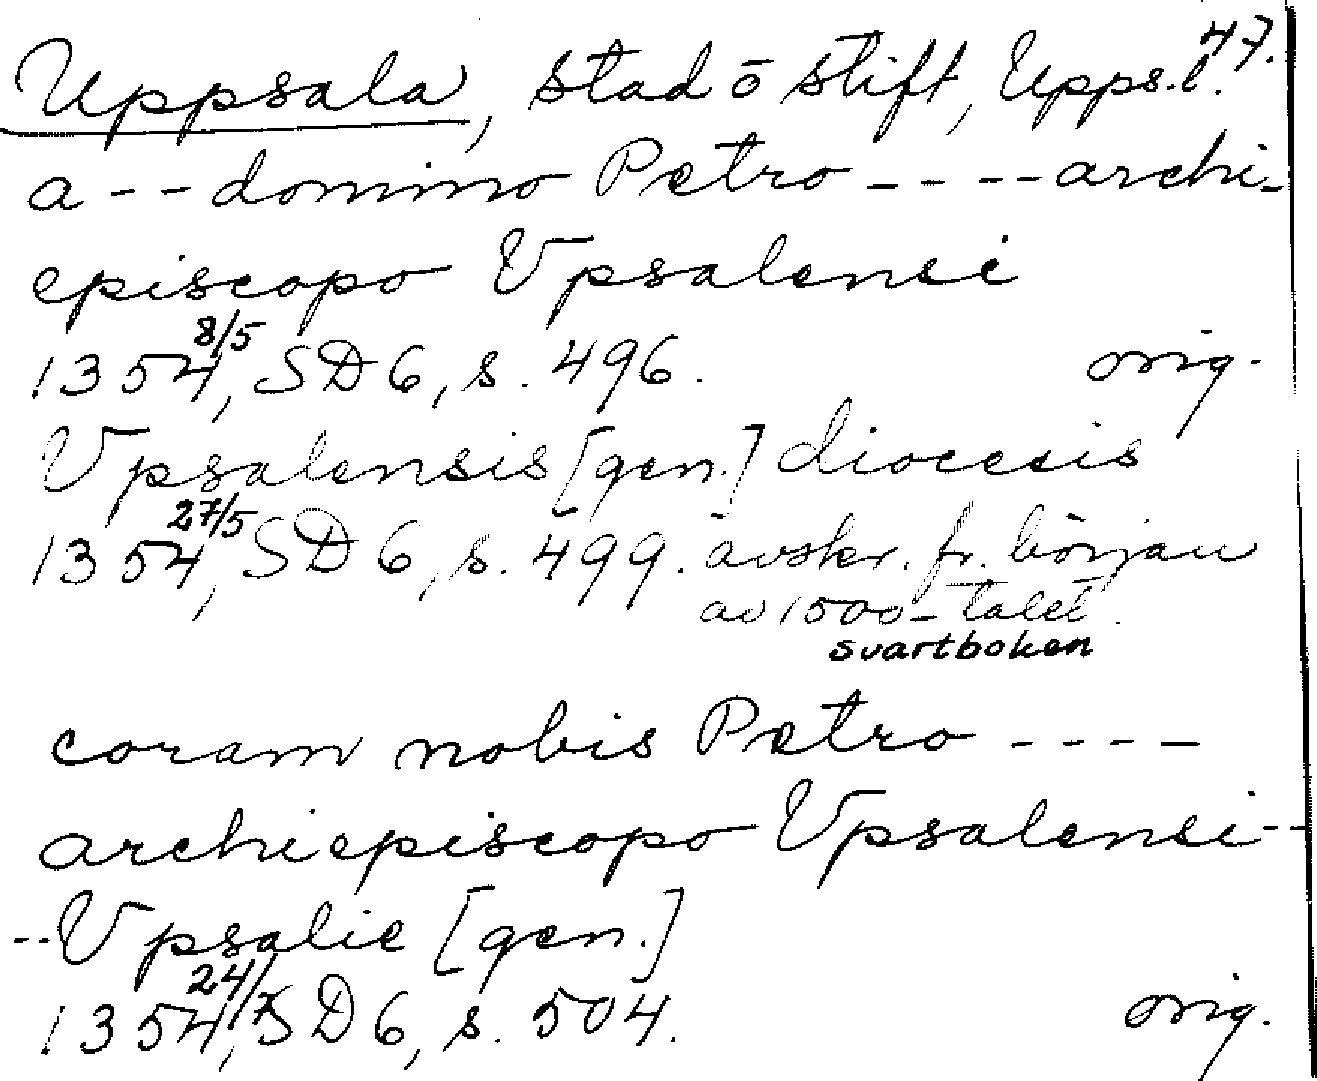 47.
Uppsala, stad o stift, Upps.l.
a -- domino Petro ---- archi-
episcopo Vpsalensi
1354 8/5, SD 6, s. 496. orig.
Vpsalensis [gen.] diocesis
1354 27/5, SD 6, s. 499. avskr. fr. början
av 1500-talet.
svartboken
coram nobis Petro ----
archiepiscopo Vpsalensi--
--Vpsalie [gen.]
1354 24/7, SD 6, s. 504. orig.